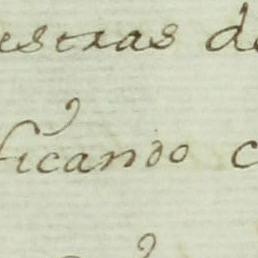 estras de
ficando c